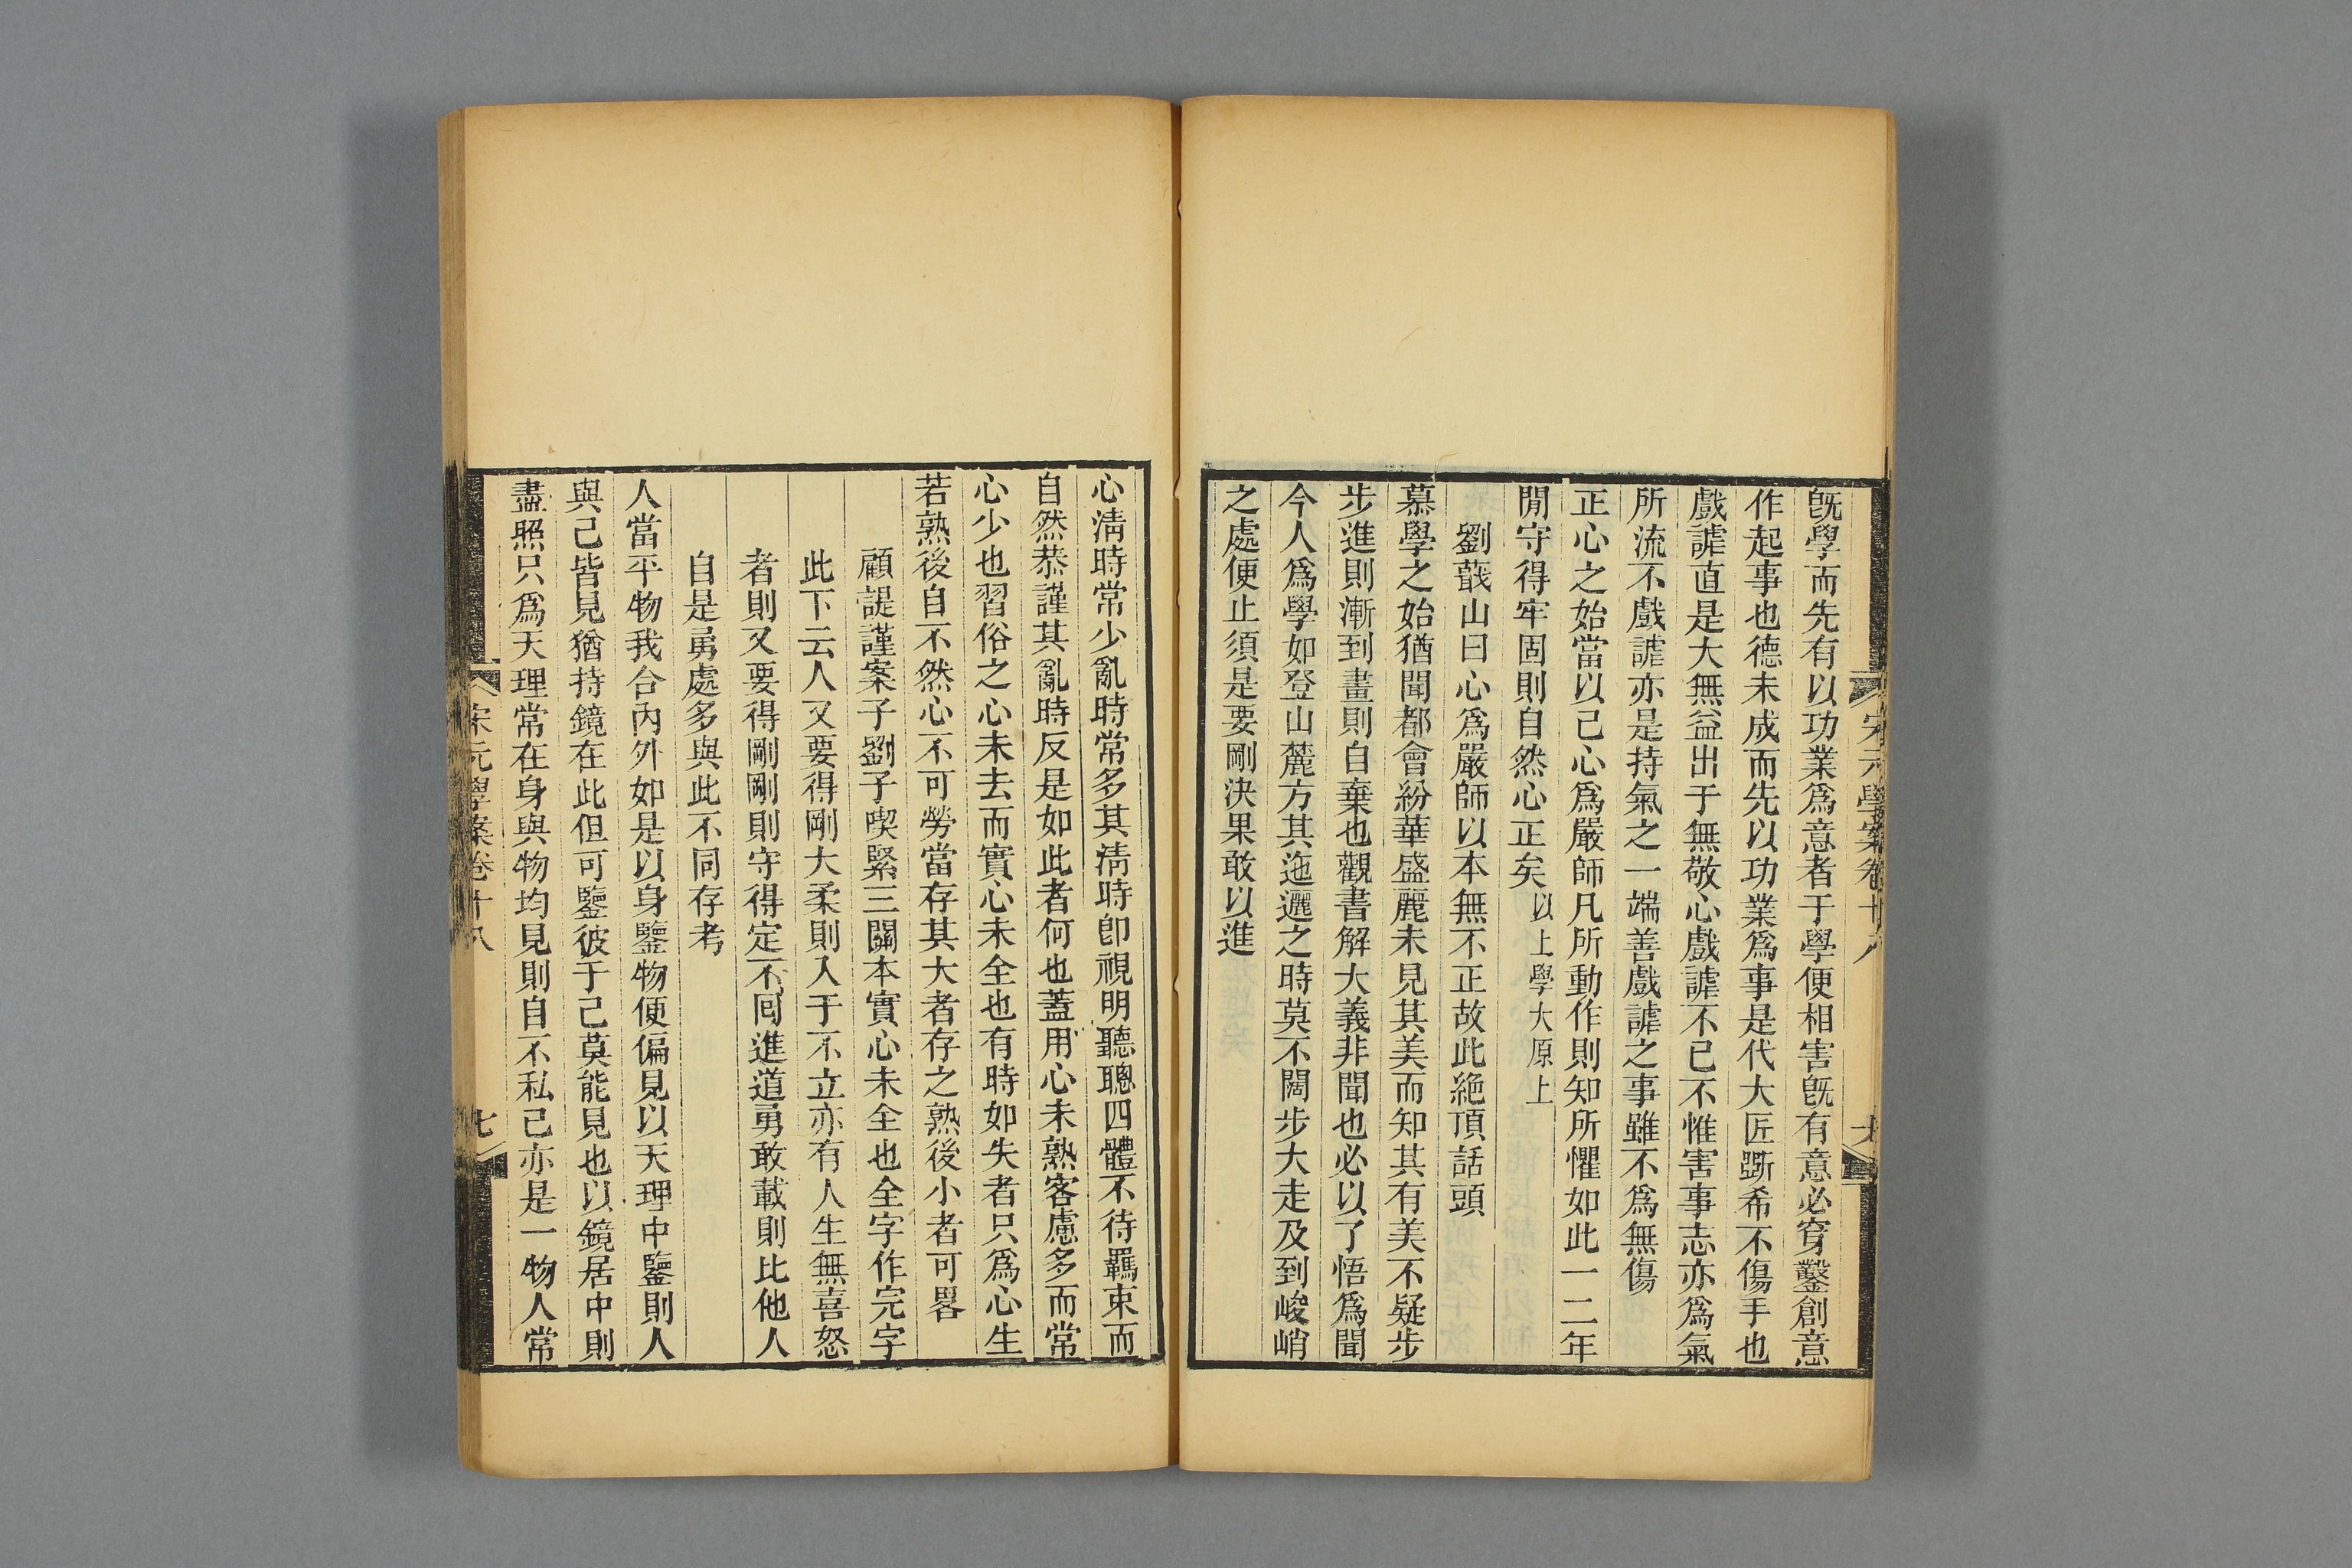 旣學而先有以功業爲意者于學便相害旣有意必穿鑿創意
作起事也德未成而先以功業爲事是代大匠斲希不傷手也
戲謔直是大無益出于無敬心戲謔不已不惟害事志亦爲氣
所流不戲謔亦是持氣之一端善戲謔之事雖不爲無傷
正心之始當以己心爲嚴師凡所動作則知所懼如此一二年
閒守得牢固則自然心正矣以上學大原上
劉蕺山曰心爲嚴師以本無不正故此絶頂話頭
慕學之始猶聞都會紛華盛麗未見其美而知其有美不疑步
步進則漸到畫則自棄也觀書解大義非聞也必以了悟爲聞
今人爲學如登山麓方其迤邐之時莫不闊步大走及到峻峭
之處便止須是要剛決果敢以進
心淸時常少亂時常多其淸時卽視明聽聰四體不待羈束而
自然恭謹其亂時反是如此者何也蓋用心未熟客慮多而常
心少也習俗之心未去而實心未全也有時如失者只爲心生
若熟後自不然心不可勞當存其大者存之熟後小者可畧
顧諟謹案子劉子喫緊三關本實心未全也全字作完字
此下云人又要得剛大柔則入于不立亦有人生無喜怒
者則又要得剛剛則守得定不囘進道勇敢載則比他人
自是勇處多與此不同存考
人當平物我合內外如是以身鑒物便偏見以天理中鑒則人
與己皆見猶持鏡在此但可鑒彼于己莫能見也以鏡居中則
盡照只爲天理常在身與物均見則自不私己亦是一物人常
宋元學案卷十八
七